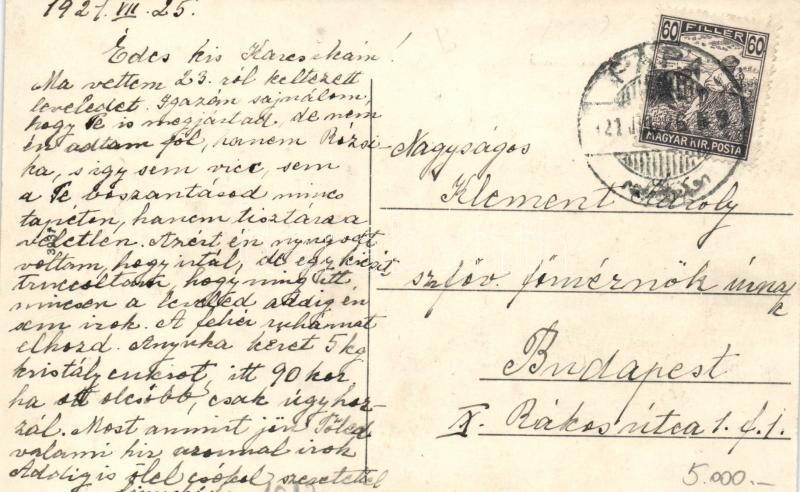 1921. VII. 25.
Édes kis Karcsikám!
Ma vettem 23. ról keltezett
leveledet. Igazán sajnálom,
hogy Te is megjártad, de nem
én adtam föl, hanem Rózsi-
ka, s így sem vicc, sem
a Te boszantásod nincs
tapéten, hanem tisztára a
véletlen. Azért én nyugodt
voltam, hogy írtál, de egy kicsit
truccoltam, hogy míg itt
nincsen a leveled addig én
sem irok. A fehér ruhámat
elhozd. Anyuka kéret 5 kg
kristálycukrot, itt 90 kor
ha ott olcsóbb, csak úgy hoz-
zál. Most annint jön Tőled
valami hir azonnal irok
Addig is ölel csókol szeretettel
3237
60 FILLÉR 60
MAGYAR KIR. POSTA
Nagyságos
Klement Károly
szföv. főmérnök úrnak
Budapest
X. Rákos útca 1. f. 1.
5.000.-